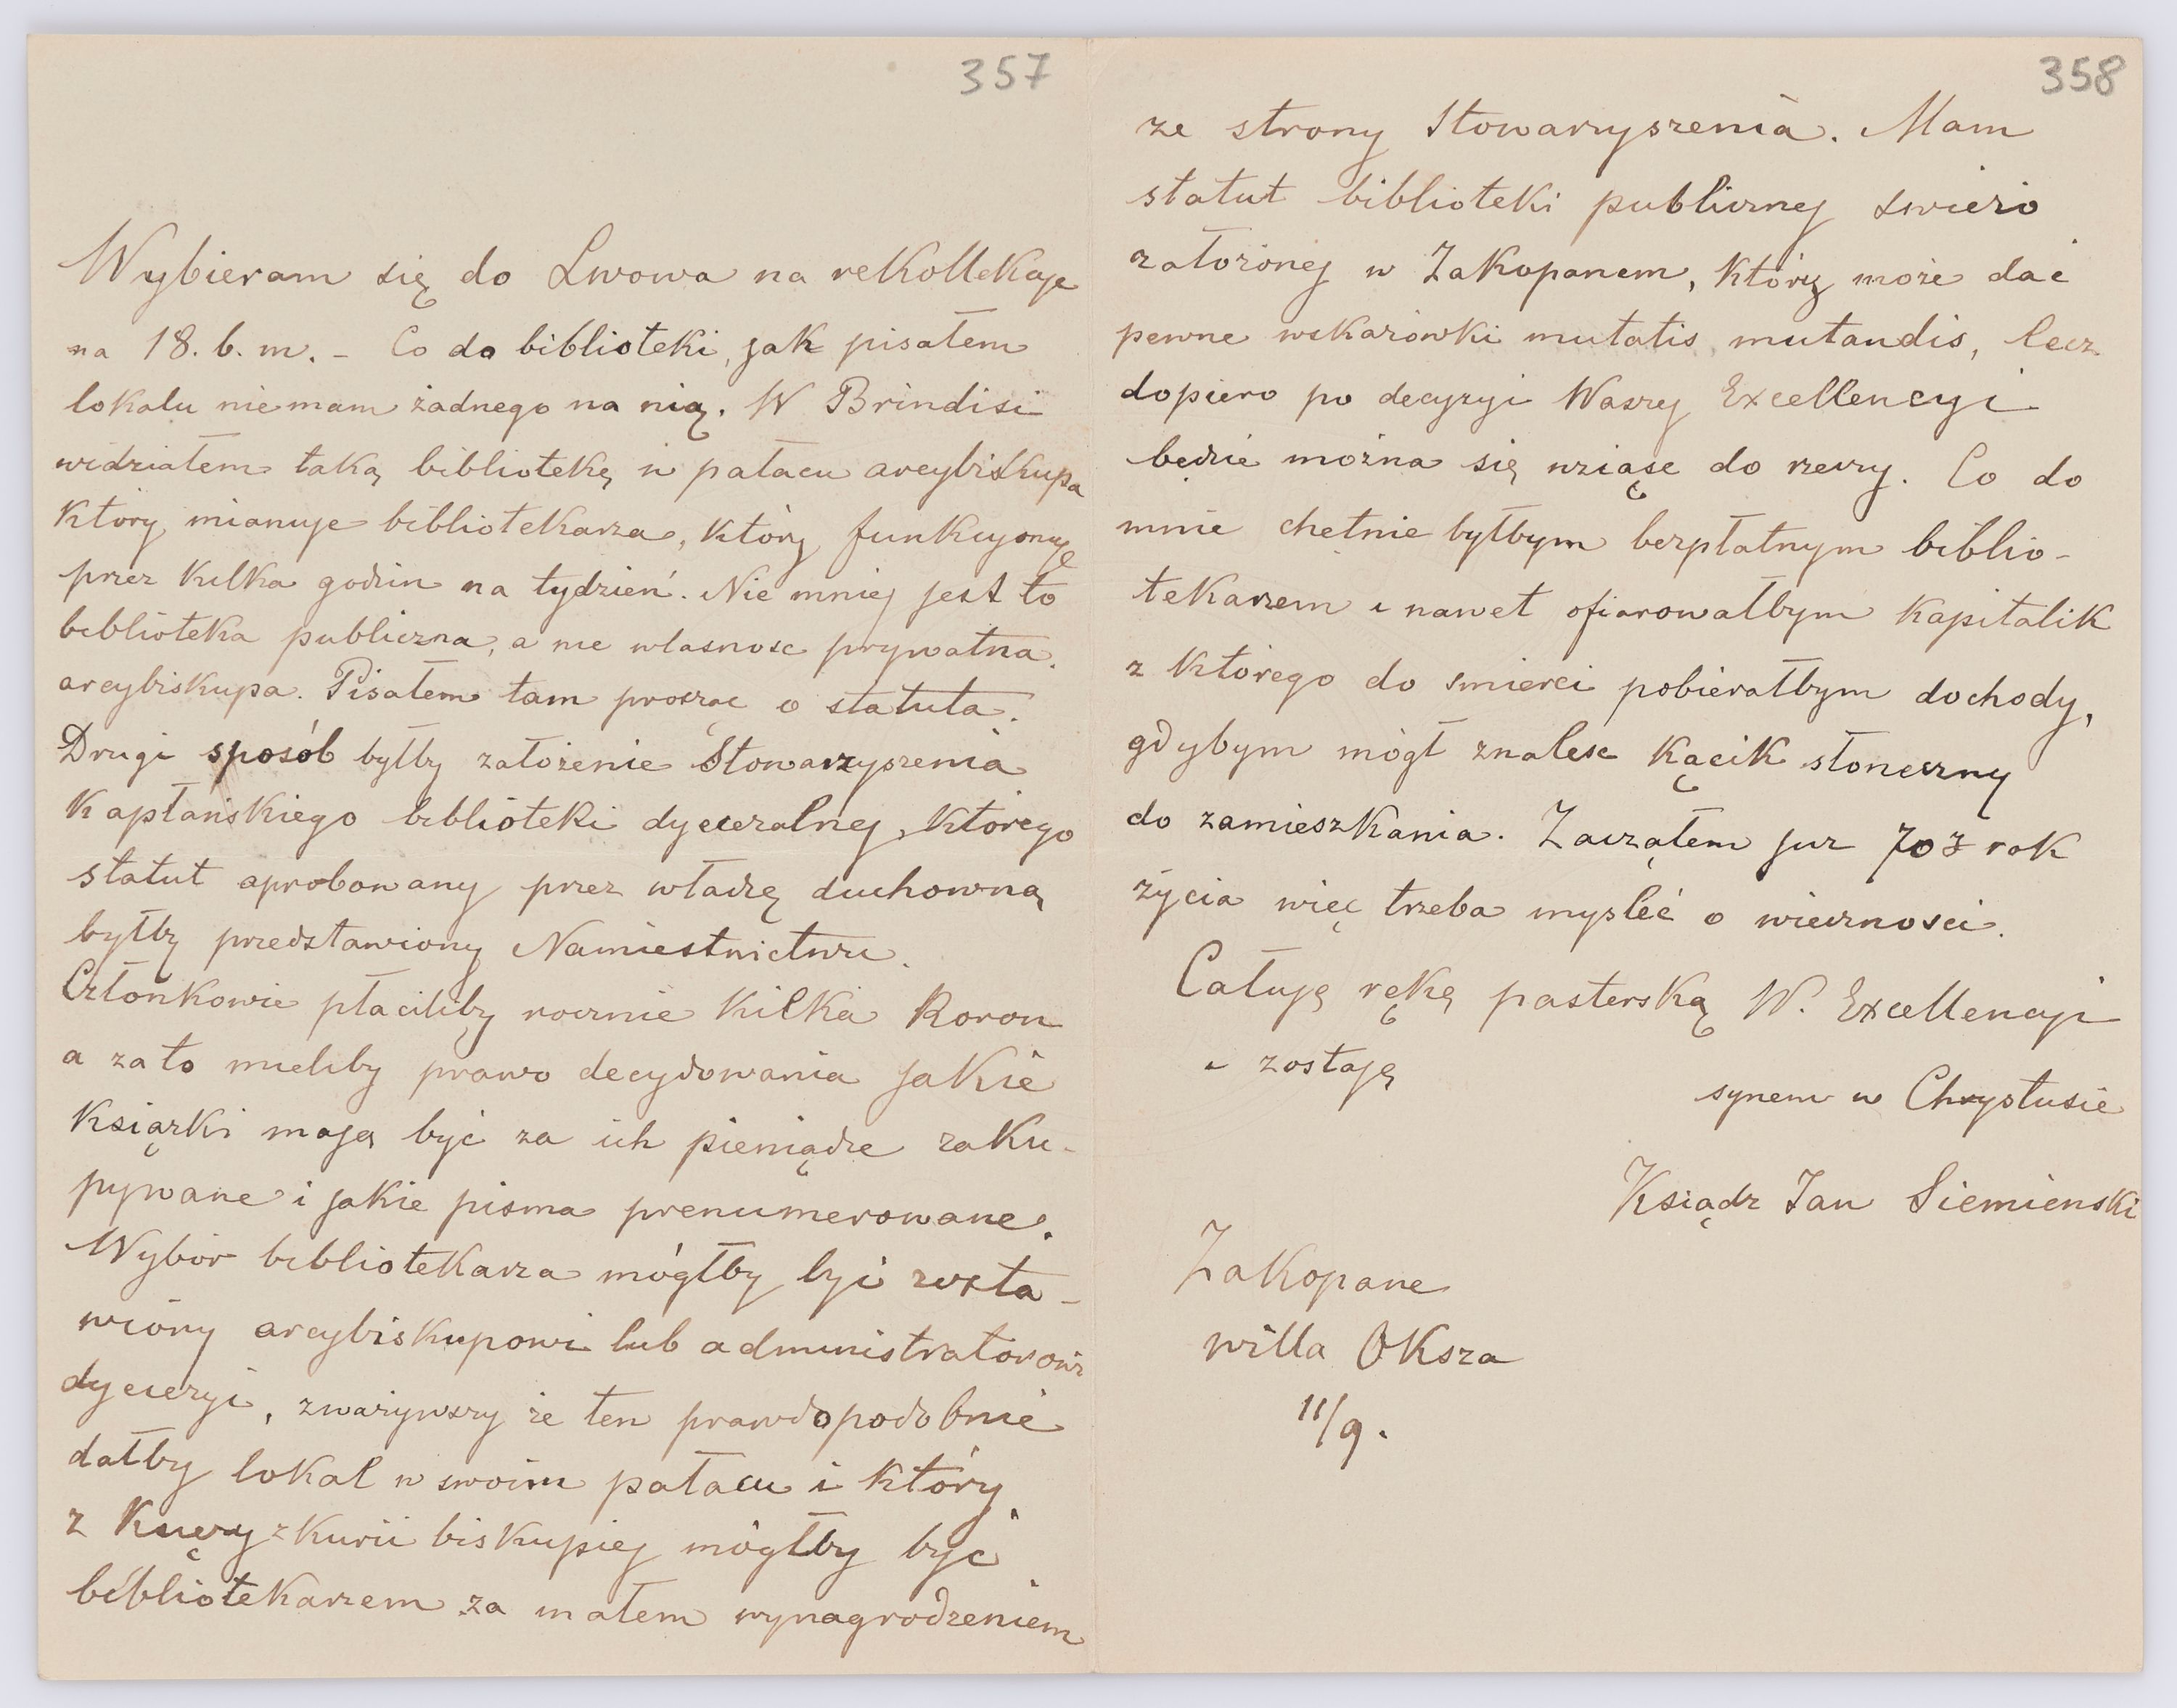 357
Wybieram się do Lwowa na rekollekcje
na 18. b. m. - Co do biblioteki, jak pisałem
lokalu niemam żadnego na nią. W Brindisi
widziałem taką bibliotekę w pałacu arcybiskupa
który mianuje bibliotekarza, który funkcyonuje
przez kilka godzin na tydzień. Nie mniej jest to
biblioteka publiczna, a nie wlasnosc prywatna
arcybiskupa. Pisałem tam prosząc o statuta.
Drugi sposób byłby założenie Stowarzyszenia
Kapłańskiego biblioteki dyecezalnej, którego
statut aprobowany przez władzę duchowną
byłby przedstawiony Namiestnictwu.
Członkowie płaciliby rocznie kilka Koron
a za to mieliby prawo decydowania jakie
książki mają być za ich pieniądze zaku-
pywane i jakie pisma prenumerowane.
Wybór bibliotekarza mógłby być zosta-
wiony arcybiskupowi lub administratorowi
dyecezyi, zważywszy że ten prawdopodobnie
dałby lokal w swoim pałacu i który
z Kurii biskupiej mógłby być
bibliotekarzem za małem wynagrodzeniem
358
ze strony Stowarzyszenia. Mam
statut biblioteki publicznej swieżo
założonej w Zakopanem, który może dać
pewne wskazówki mutatis mutandis, lecz
dopiero po decyzyi Waszej Excellencyi
będzie można się wziąsc do rzeczy. Co do
mnie chetnie byłbym bezpłatnym biblio-
tekarzem i nawet ofiarowałbym Kapitalik
z którego do smierci pobierałbym dochody,
gdybym mógł znalesc kącik słoneczny
do zamieszkania. Zacząłem juz 70 rok
życia więc trzeba mysleć o wiecznosci.
Całuję rękę pasterską W. Excellencyi
i zostaję
synem w Chrystusie
Ksiądz Jan Siemienski
Zakopane
willa Oksza
11/9.